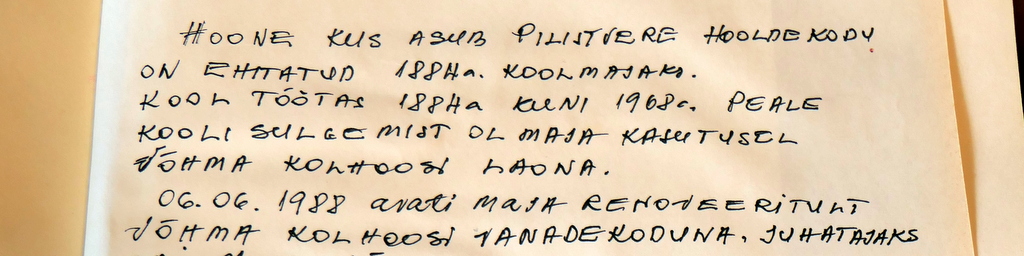 HOONE KUS ASUB PILISTVERE HOOLDEKODU
ON EHITATUD 1884a. KOOLMAJAKS.
KOOL TÖÖTAS 1884a KUNI 1968a. PEALE
KOOLI SULGEMIST OL MAJA KASUTUSEL
VÕHMA KOLHOOSI LAONA.
06.06.1988 avati MAJA RENOVEERITULT
VÕHMA KOLHOOSI VANADEKODUNA, JUHATAJAKS